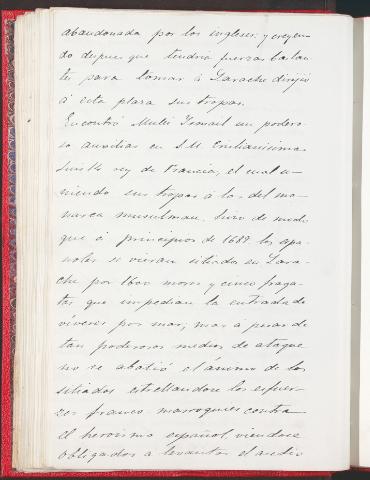 abandonada por los ingleses: y creyen-
do despues que tendria fuerzas bastan-
te para tomar á Larache dirijió
á esta plaza sus tropas.
Encontró Muleé Ismail un podero-
so auxilias en S.M. Cristianisima
Luis 14 rey de Francia, el cual u-
niendo sus tropas á las del mo-
narca musulman, hizo de modo
que á principios de 1689 los espa-
ñoles se vieran sitiados en Lara-
che por 1600 moros y cinco fraga-
tas que impedian la entrada de
viveres por mar; mas a pesar de
tan poderosos medios de ataque
no se abatió el ánimo de los
sitiados estrellandose los esfuer-
zos franco marroquies contra
el heroismo español, viendose
obligados a levantar el asedio